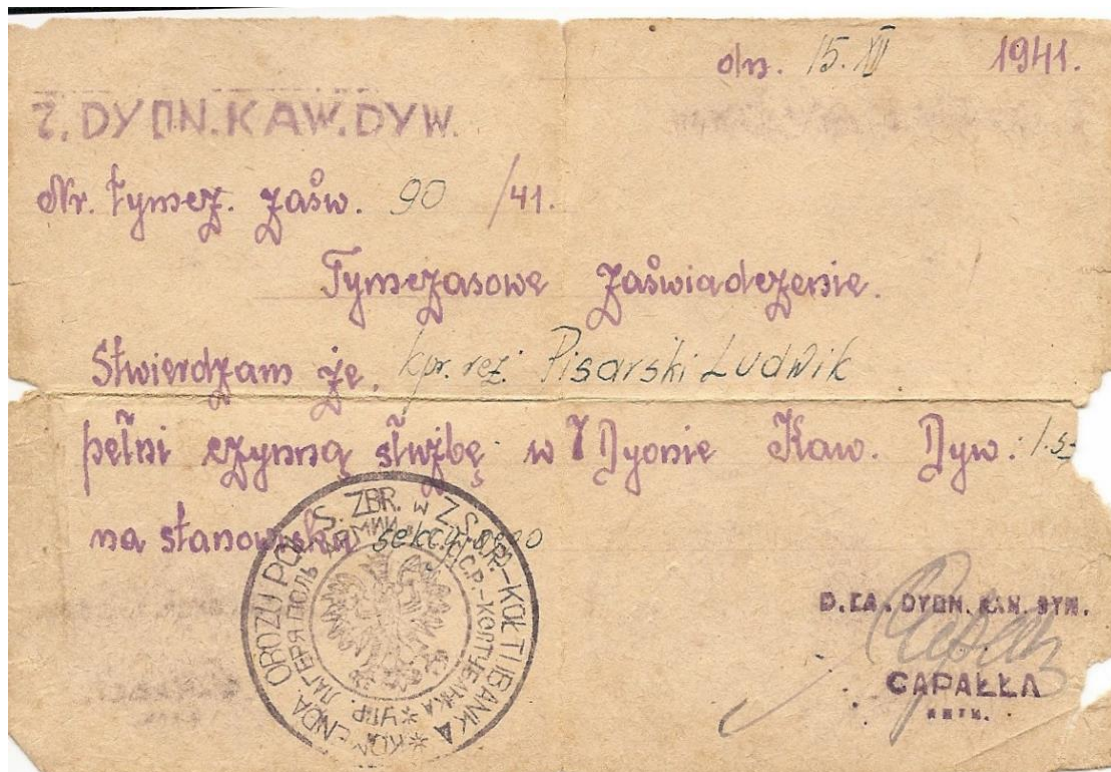 dn. 15. XII 1941.
7. DYON. KAW. DYW.
Nr. tymcz. zaśw. 90 /41.
Tymczasowe zaświadczenie.
Stwierdzam że. kpr. rez. Pisarski Ludwik
pełni czynną służbę w 7 Dyonie Kaw. Dyw:
na stanowisku sekcyjnego
KOMENDA OBOZU POL. S. ZBR. W Z.S.R.R.-KOŁTUBANKA
D.CA. DYON. KAW. DYW.
CAPAŁŁA
RNTM.